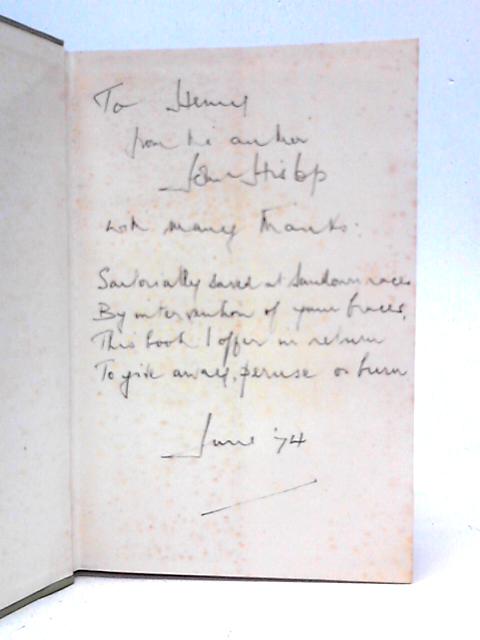 To Henry
from the author
John Hislop
with many thanks.
Sartorially saved at Sandown races
By intervention of your braces,
This book I offer in return
To give away, peruse or burn
June '74